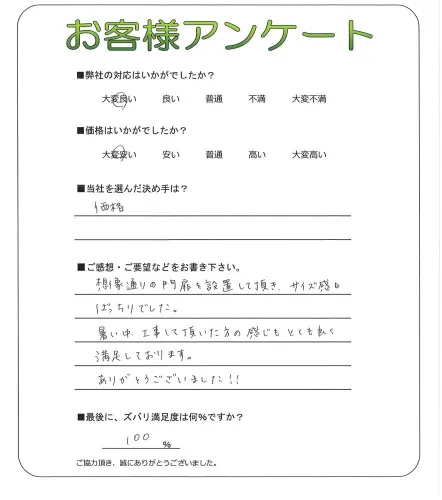 お客様アンケート
■弊社の対応はいかがでしたか？
大変良い　良い　普通　不満　大変不満
■価格はいかがでしたか？
大変安い　安い　普通　高い　大変高い
■当社を選んだ決め手は？
価格
■ご感想・ご要望などをお書き下さい。
想像通りの門扉を設置して頂き、サイズ感も
ばっちりでした。
暑い中、工事して頂いた方の感じもとても良く
満足しております。
ありがとうございました!!
■最後に、ズバリ満足度は何%ですか？
100 %
ご協力頂き、誠にありがとうございました。